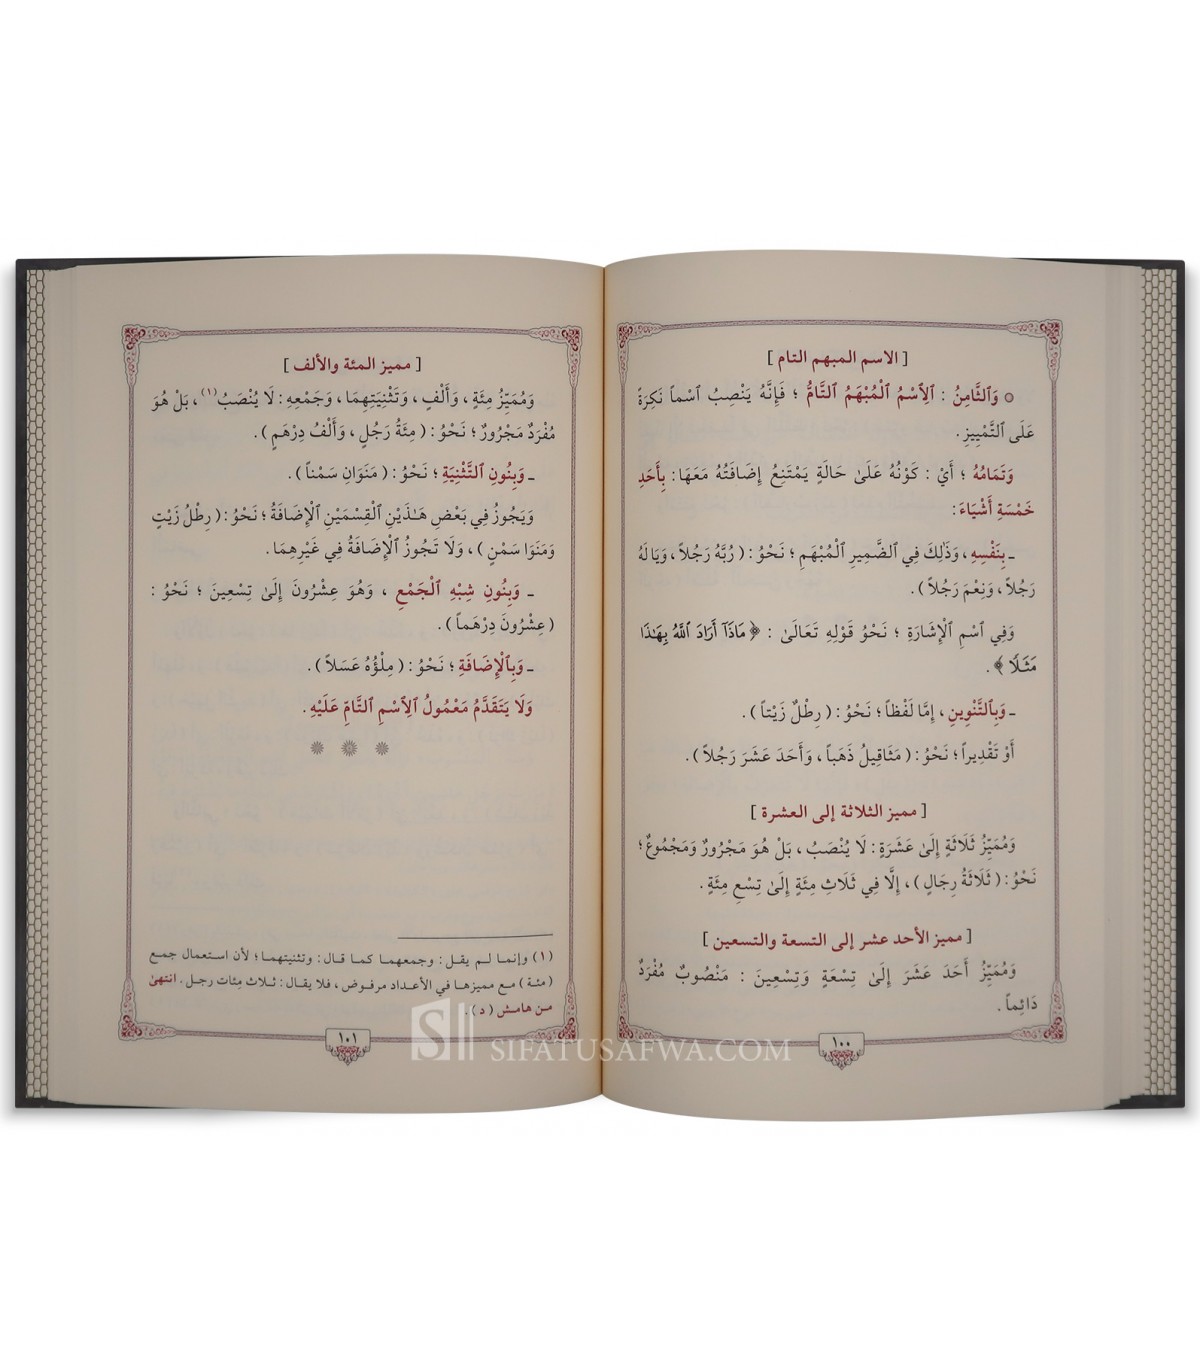 [ الاسم المبهم التام ]
وَٱلثَّامِنُ : ٱلِٱسْمُ ٱلْمُبْهَمُ ٱلتَّامُّ ؛ فَإِنَّهُ يَنْصِبُ ٱسْماً نَكِرَةً
عَلَى ٱلتَّمْيِيزِ .
وَتَمَامُهُ ؛ أَيْ : كَوْنُهُ عَلَىٰ حَالَةٍ يَمْتَنِعُ إِضَافَتُهُ مَعَهَا : بِأَحَدِ
خَمْسَةِ أَشْيَاءَ :
ـ بِنَفْسِهِ ، وَذَٰلِكَ فِي ٱلضَّمِيرِ ٱلْمُبْهَمِ ؛ نَحْوُ : ( رُبَّهُ رَجُلاً ، وَيَا لَهُ
رَجُلاً ، وَنِعْمَ رَجُلاً ) .
وَفِي ٱسْمِ ٱلْإِشَارَةِ ؛ نَحْوُ قَوْلِهِ تَعَالَىٰ : ﴿ مَاذَآ أَرَادَ ٱللَّهُ بِهَٰذَا
مَثَلًا ﴾ .
ـ وَبِٱلتَّنْوِينِ ، إِمَّا لَفْظاً ؛ نَحْوُ : ( رِطْلٌ زَيْتاً ) .
أَوْ تَقْدِيراً ؛ نَحْوُ : ( مَثَاقِيلُ ذَهَباً ، وَأَحَدَ عَشَرَ رَجُلاً ) .
[ مميز الثلاثة إلى العشرة ]
وَمُمَيِّزُ ثَلَاثَةٍ إِلَىٰ عَشَرَةٍ : لَا يُنْصَبُ ، بَلْ هُوَ مَجْرُورٌ وَمَجْمُوعٌ ؛
نَحْوُ : ( ثَلَاثَةُ رِجَالٍ ) ، إِلَّا فِي ثَلَاثِ مِئَةٍ إِلَىٰ تِسْعِ مِئَةٍ .
[ مميز الأحد عشر إلى التسعة والتسعين ]
وَمُمَيِّزُ أَحَدَ عَشَرَ إِلَىٰ تِسْعَةٍ وَتِسْعِينَ : مَنْصُوبٌ مُفْرَدٌ
دَائِماً .
١٠٠
[ مميز المئة والألف ]
وَمُمَيِّزُ مِئَةٍ ، وَأَلْفٍ ، وَتَثْنِيَتِهِمَا ، وَجَمْعِهِ : لَا يُنْصَبُ (١) ، بَلْ هُوَ
مُفْرَدٌ مَجْرُورٌ ؛ نَحْوُ : ( مِئَةُ رَجُلٍ ، وَأَلْفُ دِرْهَمٍ ) .
ـ وَبِنُونِ ٱلتَّثْنِيَةِ ؛ نَحْوُ : ( مَنَوَانِ سَمْناً ) .
وَيَجُوزُ فِي بَعْضِ هَـٰذَيْنِ ٱلْقِسْمَيْنِ ٱلْإِضَافَةُ ؛ نَحْوُ : ( رِطْلُ زَيْتٍ
وَمَنَوَا سَمْنٍ ) ، وَلَا تَجُوزُ ٱلْإِضَافَةُ فِي غَيْرِهِمَا .
ـ وَبِنُونِ شِبْهِ ٱلْجَمْعِ ، وَهُوَ عِشْرُونَ إِلَىٰ تِسْعِينَ ؛ نَحْوُ :
( عِشْرُونَ دِرْهَماً ) .
ـ وَبِٱلْإِضَافَةِ ؛ نَحْوُ : ( مِلْؤُهُ عَسَلاً ) .
وَلَا يَتَقَدَّمُ مَعْمُولُ ٱلِٱسْمِ ٱلتَّامِّ عَلَيْهِ .
(١) وإنما لم يقل : وجمعهما كما قال : وتثنيتهما ؛ لأن استعمال جمع
( مئة ) مع مميزها في الأعداد مرفوض ، فلا يقال : ثلاث مِئات رجل . انتهىٰ
من هامش ( د ) .
١٠١
SIFATUSAFWA.COM